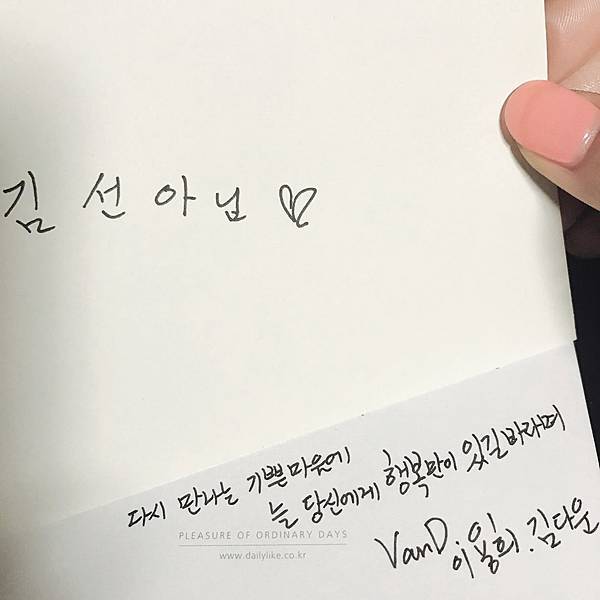 김 선 아 님 ♡
다시 만나는 기쁜마음에
늘 당신에게 행복만이 있길바라며
PLEASURE OF ORDINARY DAYS
www.dailylike.co.kr
VanD.
이용희.김다운